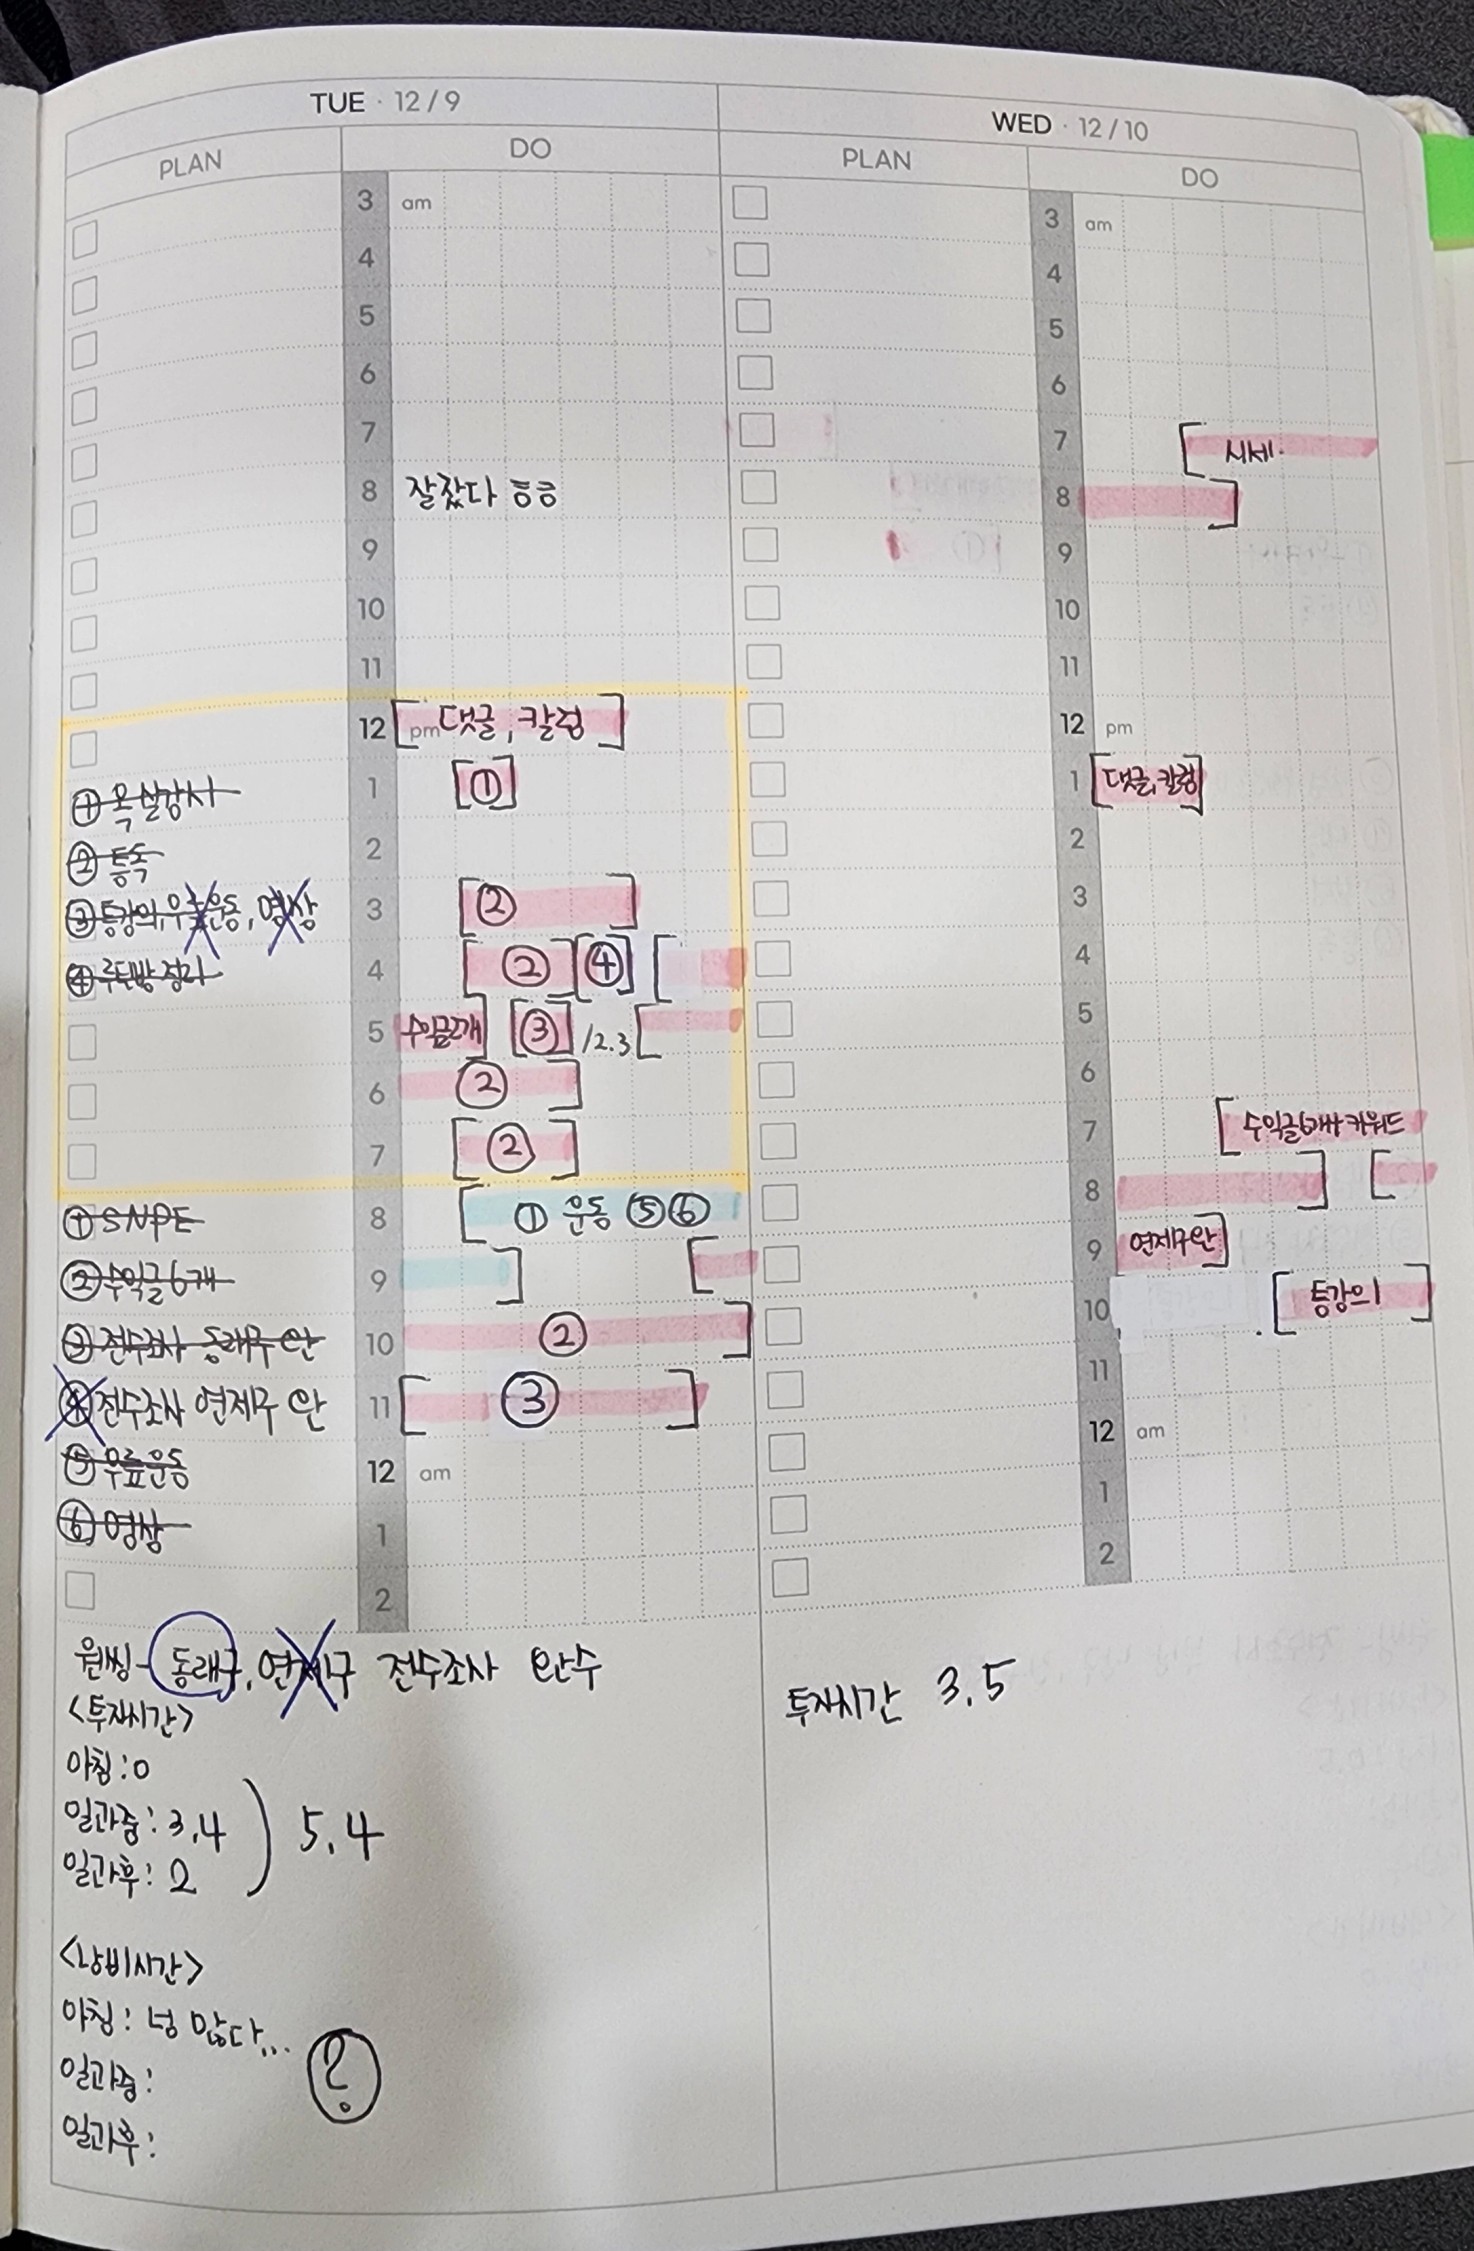 TUE · 12 / 9
PLAN
DO
3 am
4
5
6
7
8 잘잤다 ㅎㅎ
9
10
11
12 pm 댓글, 칼럼
① 목실감시 1 ①
② 통독 2
③ 튼강의, 무릎운동, 영상 3 ②
④ 루틴방 정리 4 ② ④
5 수익글2개 ③ /2.3
6 ②
7 ②
① SNPE 8 ① 운동 ⑤⑥
② 수익글6개 9
③ 전수조사 동래구 완 10 ②
④ 전수조사 연제구 완 11 ③
⑤ 무릎운동 12 am
⑥ 영상 1
2
원씽 - 동래구, 연제구 전수조사 완수
<투자시간>
아침 : 0
일과중 : 3.4
일과후 : 2
5.4
<낭비시간>
아침 : 넝 많다...
일과중 :
일과후 :
?
WED · 12 / 10
PLAN
DO
3 am
4
5
6
7 시세
8
9
10
11
12 pm
1 댓글, 칼럼
2
3
4
5
6
7 수익글6개 키워드
8
9 연제구완
10 튼강의1
11
12 am
1
2
투자시간 3.5